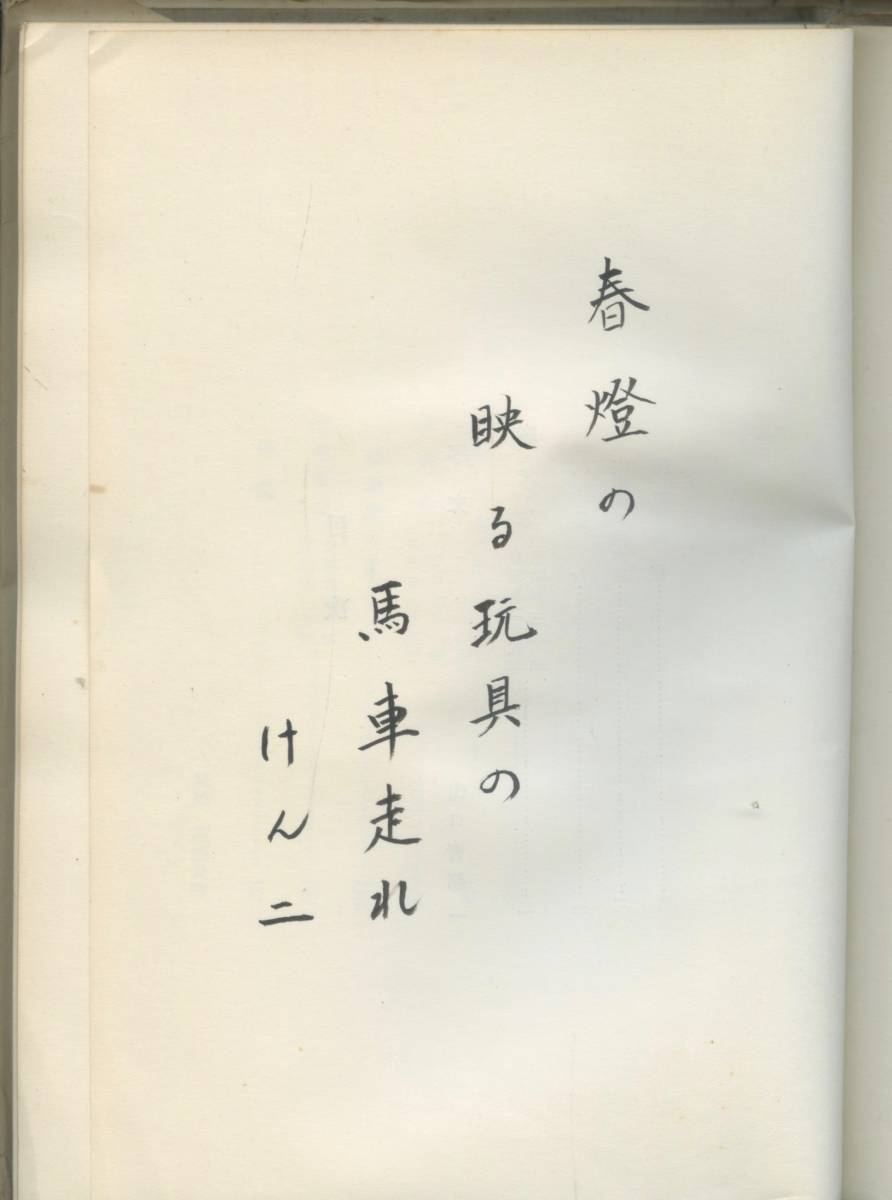 春燈の
映る玩具の
馬車走れ
けん二